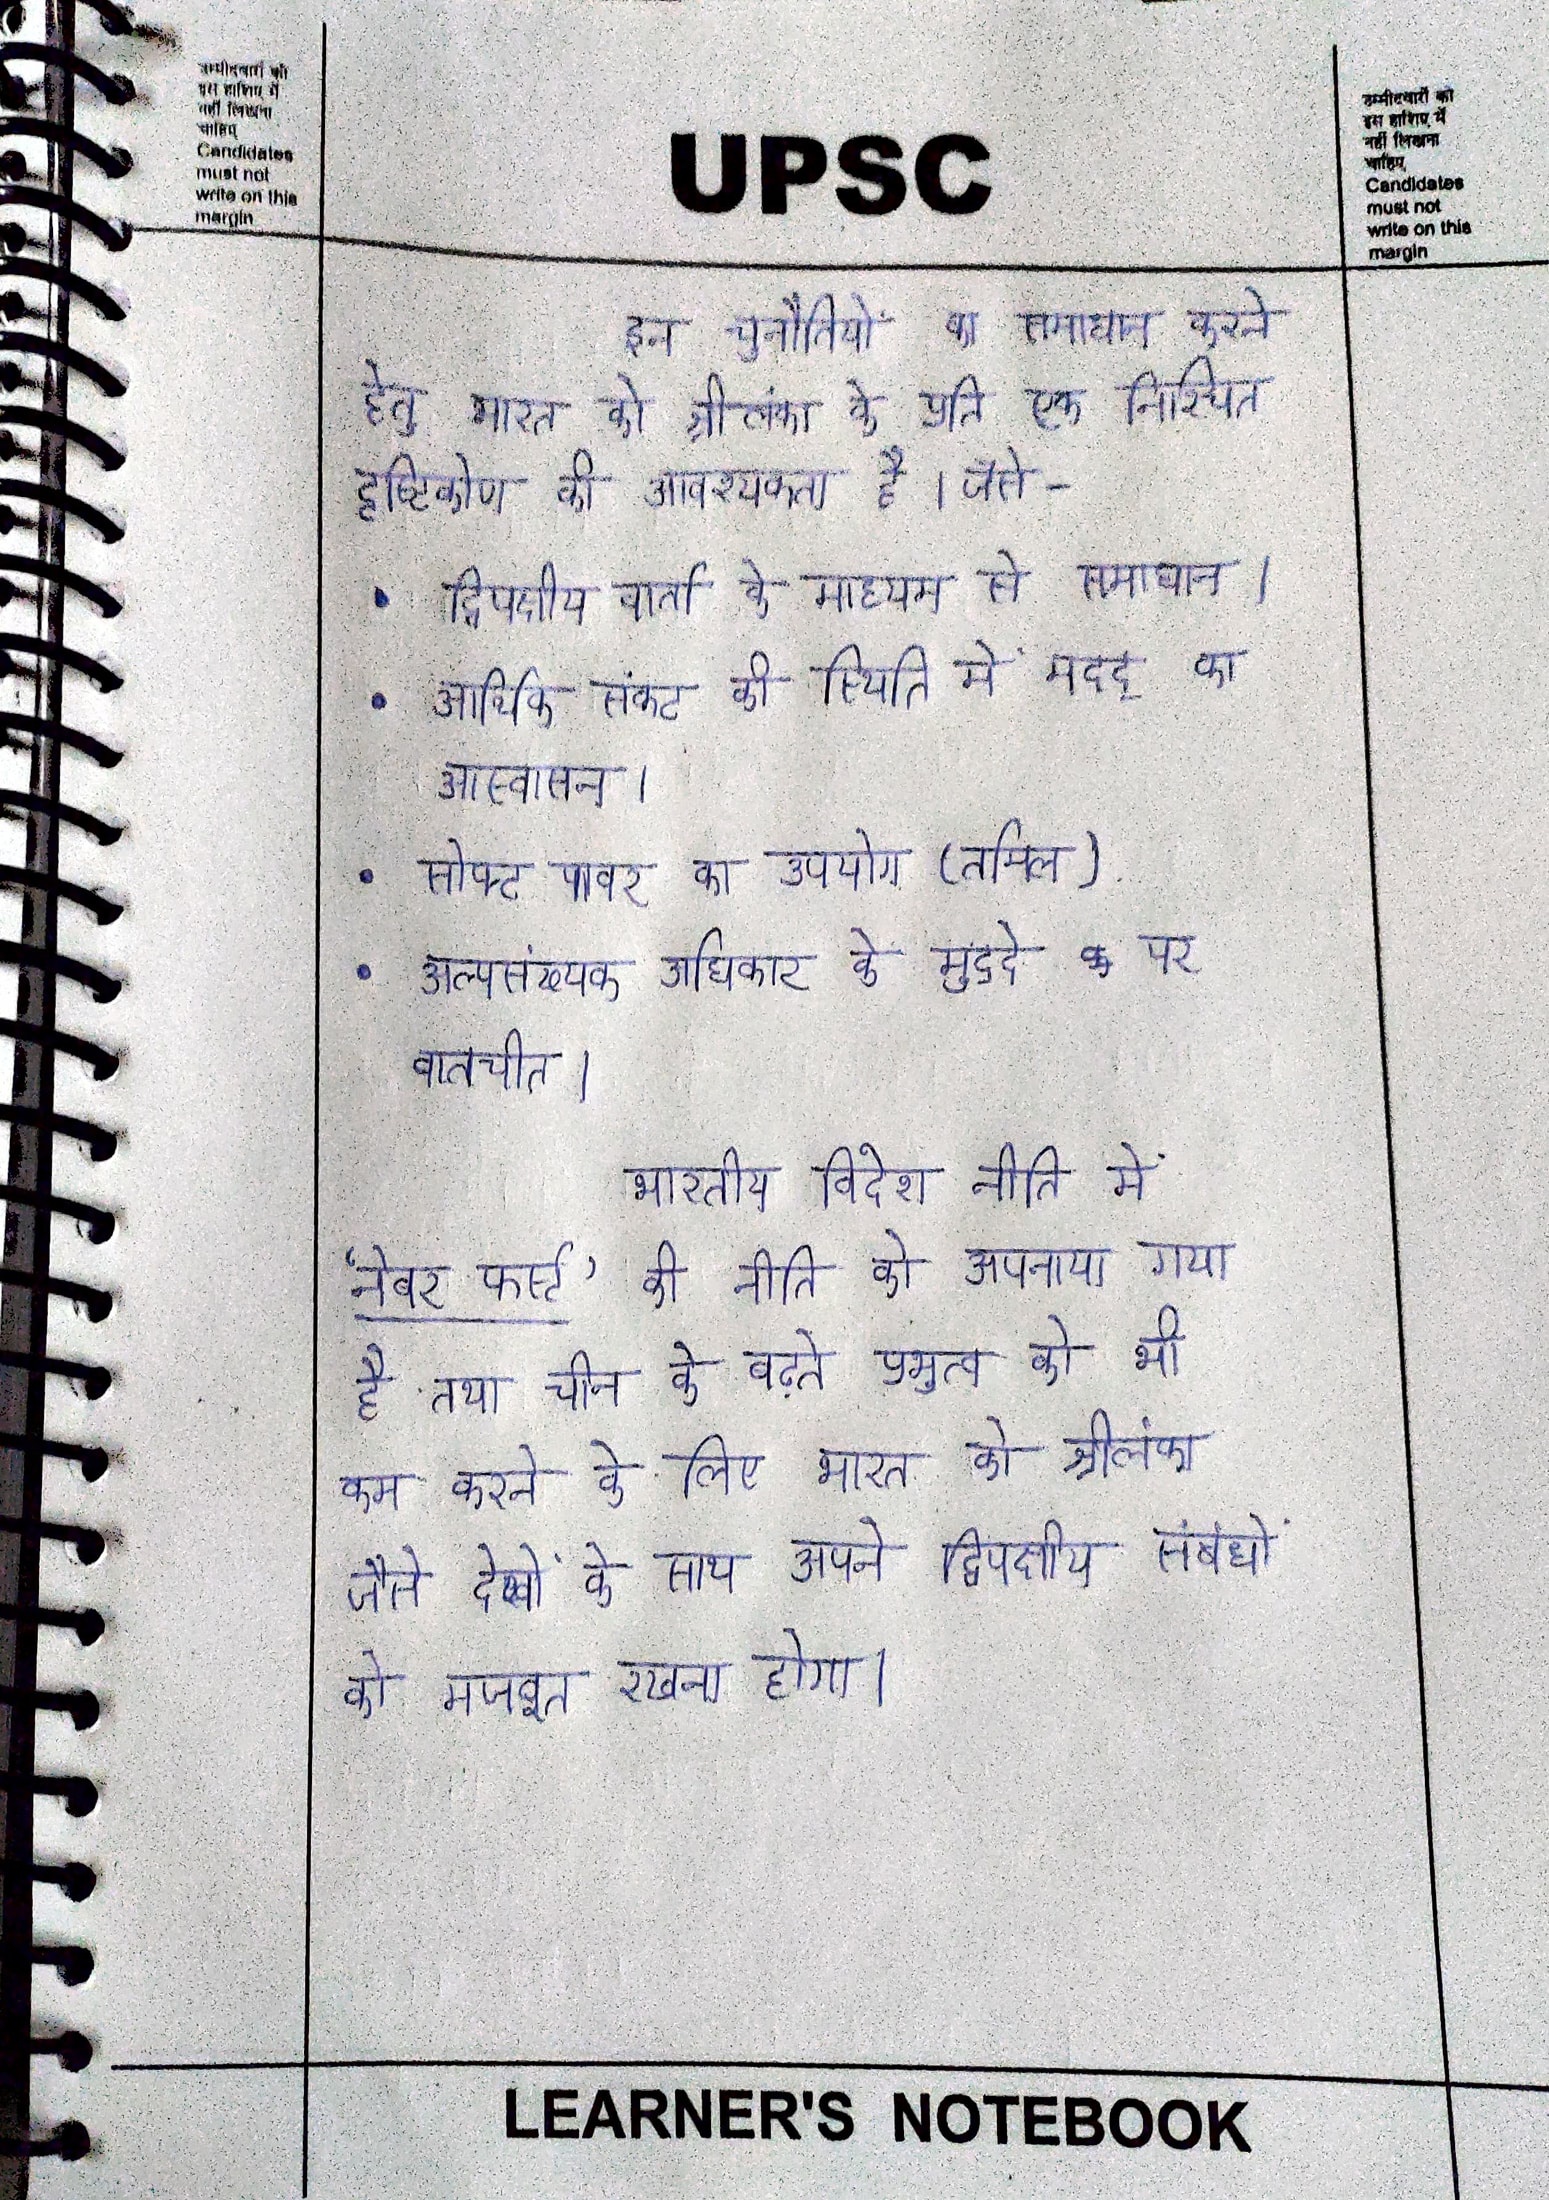 उम्मीदवारों को
इस हाशिए में
नहीं लिखना
चाहिए
Candidates
must not
write on this
margin
UPSC
उम्मीदवारों को
इस हाशिए में
नहीं लिखना
चाहिए
Candidates
must not
write on this
margin
इन चुनौतियों का समाधान करने
हेतु भारत को श्रीलंका के प्रति एक निश्चित
दृष्टिकोण की आवश्यकता है । जैसे -
• द्विपक्षीय वार्ता के माध्यम से समाधान ।
• आर्थिक संकट की स्थिति में मदद् का
आस्वासन ।
• सोफ्ट पावर का उपयोग (तमिल)
• अल्पसंख्यक अधिकार के मुद्दे पर
बातचीत ।
भारतीय विदेश नीति में
'नेबर फर्स्ट' की नीति को अपनाया गया
है तथा चीन के बढ़ते प्रभुत्व को भी
कम करने के लिए भारत को श्रीलंका
जैसे देशों के साथ अपने द्विपक्षीय संबंधों
को मजबूत रखना होगा ।
LEARNER'S NOTEBOOK